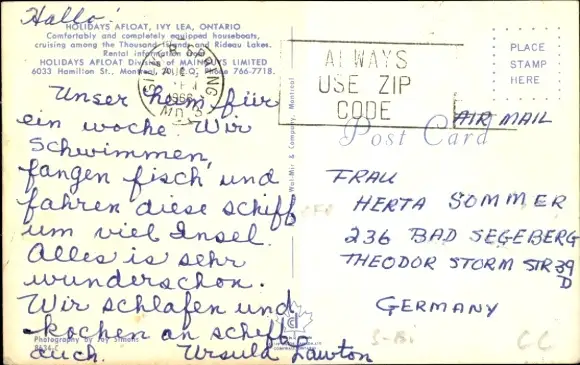 Hallo!
HOLIDAYS AFLOAT, IVY LEA, ONTARIO
Comfortably and completely equipped houseboats,
cruising among the Thousand Islands and Rideau Lakes.
Rental information
HOLIDAYS AFLOAT Division of MAINGUYS LIMITED
6033 Hamilton St., Montreal, P.Q. Phone 766-7718.
Unser heim für
ein woche. Wir
schwimmen,
fangen fisch und
fahren diese schiff
um viel Insel.
Alles is sehr
wunderschon.
Wir schlafen und
kochen an schiff
auch. Ursula Lawton
Photography by Jay Simons
8634-C
SILVER SPRING
AUG
PM
MD
ALWAYS
USE ZIP
CODE
PLACE
STAMP
HERE
Post Card
AIR MAIL
FRAU
HERTA SOMMER
236 BAD SEGEBERG
THEODOR STORM STR 39
D
GERMANY
Wal-Mir & Company, Montreal
CC